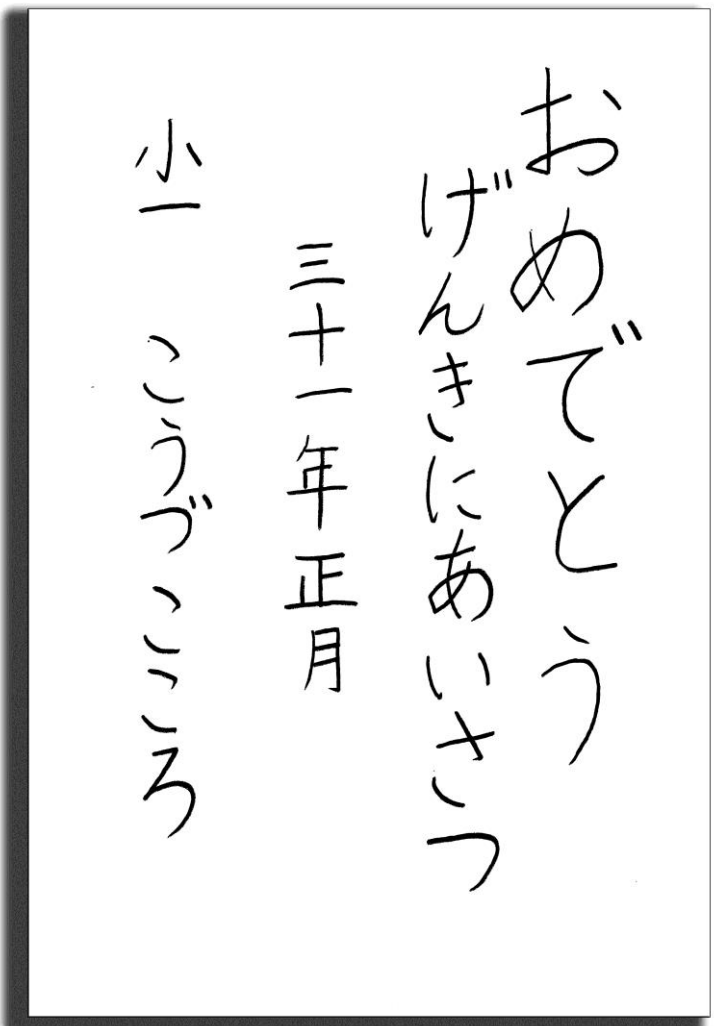 おめでとう
げんきにあいさつ
三十一年正月
小一 こうづこころ